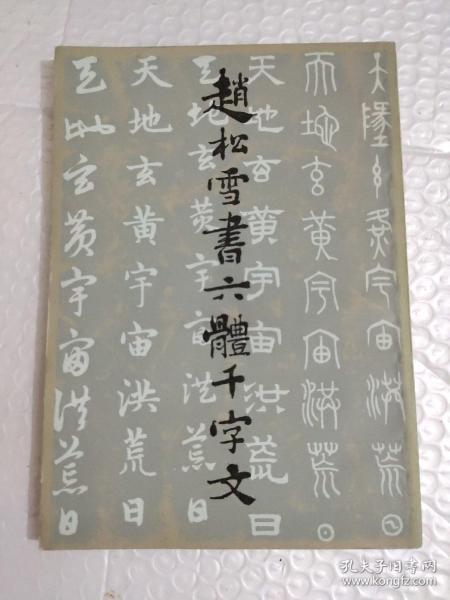 趙松雪書六體千字文
天墬玄黃宇宙洪荒日
天地玄黃宇宙洪荒日
天地玄黃宇宙洪荒日
天地玄黃宇宙洪荒日
天地玄黃宇宙洪荒日
天地玄黃宇宙洪荒日
孔夫子旧书网
www.kongfz.com